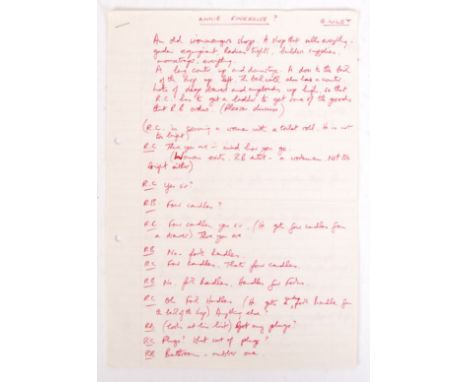 ANNIE FINKHOUSE?
An old ironmongers shop. A shop that sells everything -
garden equipment, ladies tights, builders supplies,
mousetraps, everything.
A long counter up and downstage. A door to the back
of the shop up left. The back wall also has a counter.
Lots of deep drawers and cupboards up high, so that
R.C. has to get a ladder to get some of the goods
that R.B. orders. (Please discuss)
(R.C. is serving a woman with a toilet roll. He is not
too bright)
R.C. There you are - mind how you go.
(Woman exits. R.B. enters - a workman. Not too
bright either)
R.C. Yes sir?
R.B. Four candles?
R.C. Four candles, yes sir. (He gets four candles from
a drawer) There you are
R.B. No - fork handles.
R.C. Four handles. That's four candles.
R.B. No, fork handles. Handles for forks.
R.C. Oh Fork Handles. (He gets fork handle from
the back of the shop) Anything else?
R.B. (looks at his list) Got any plugs?
R.C. Plugs? What sort of plugs?
R.B. Bathroom - rubber one.